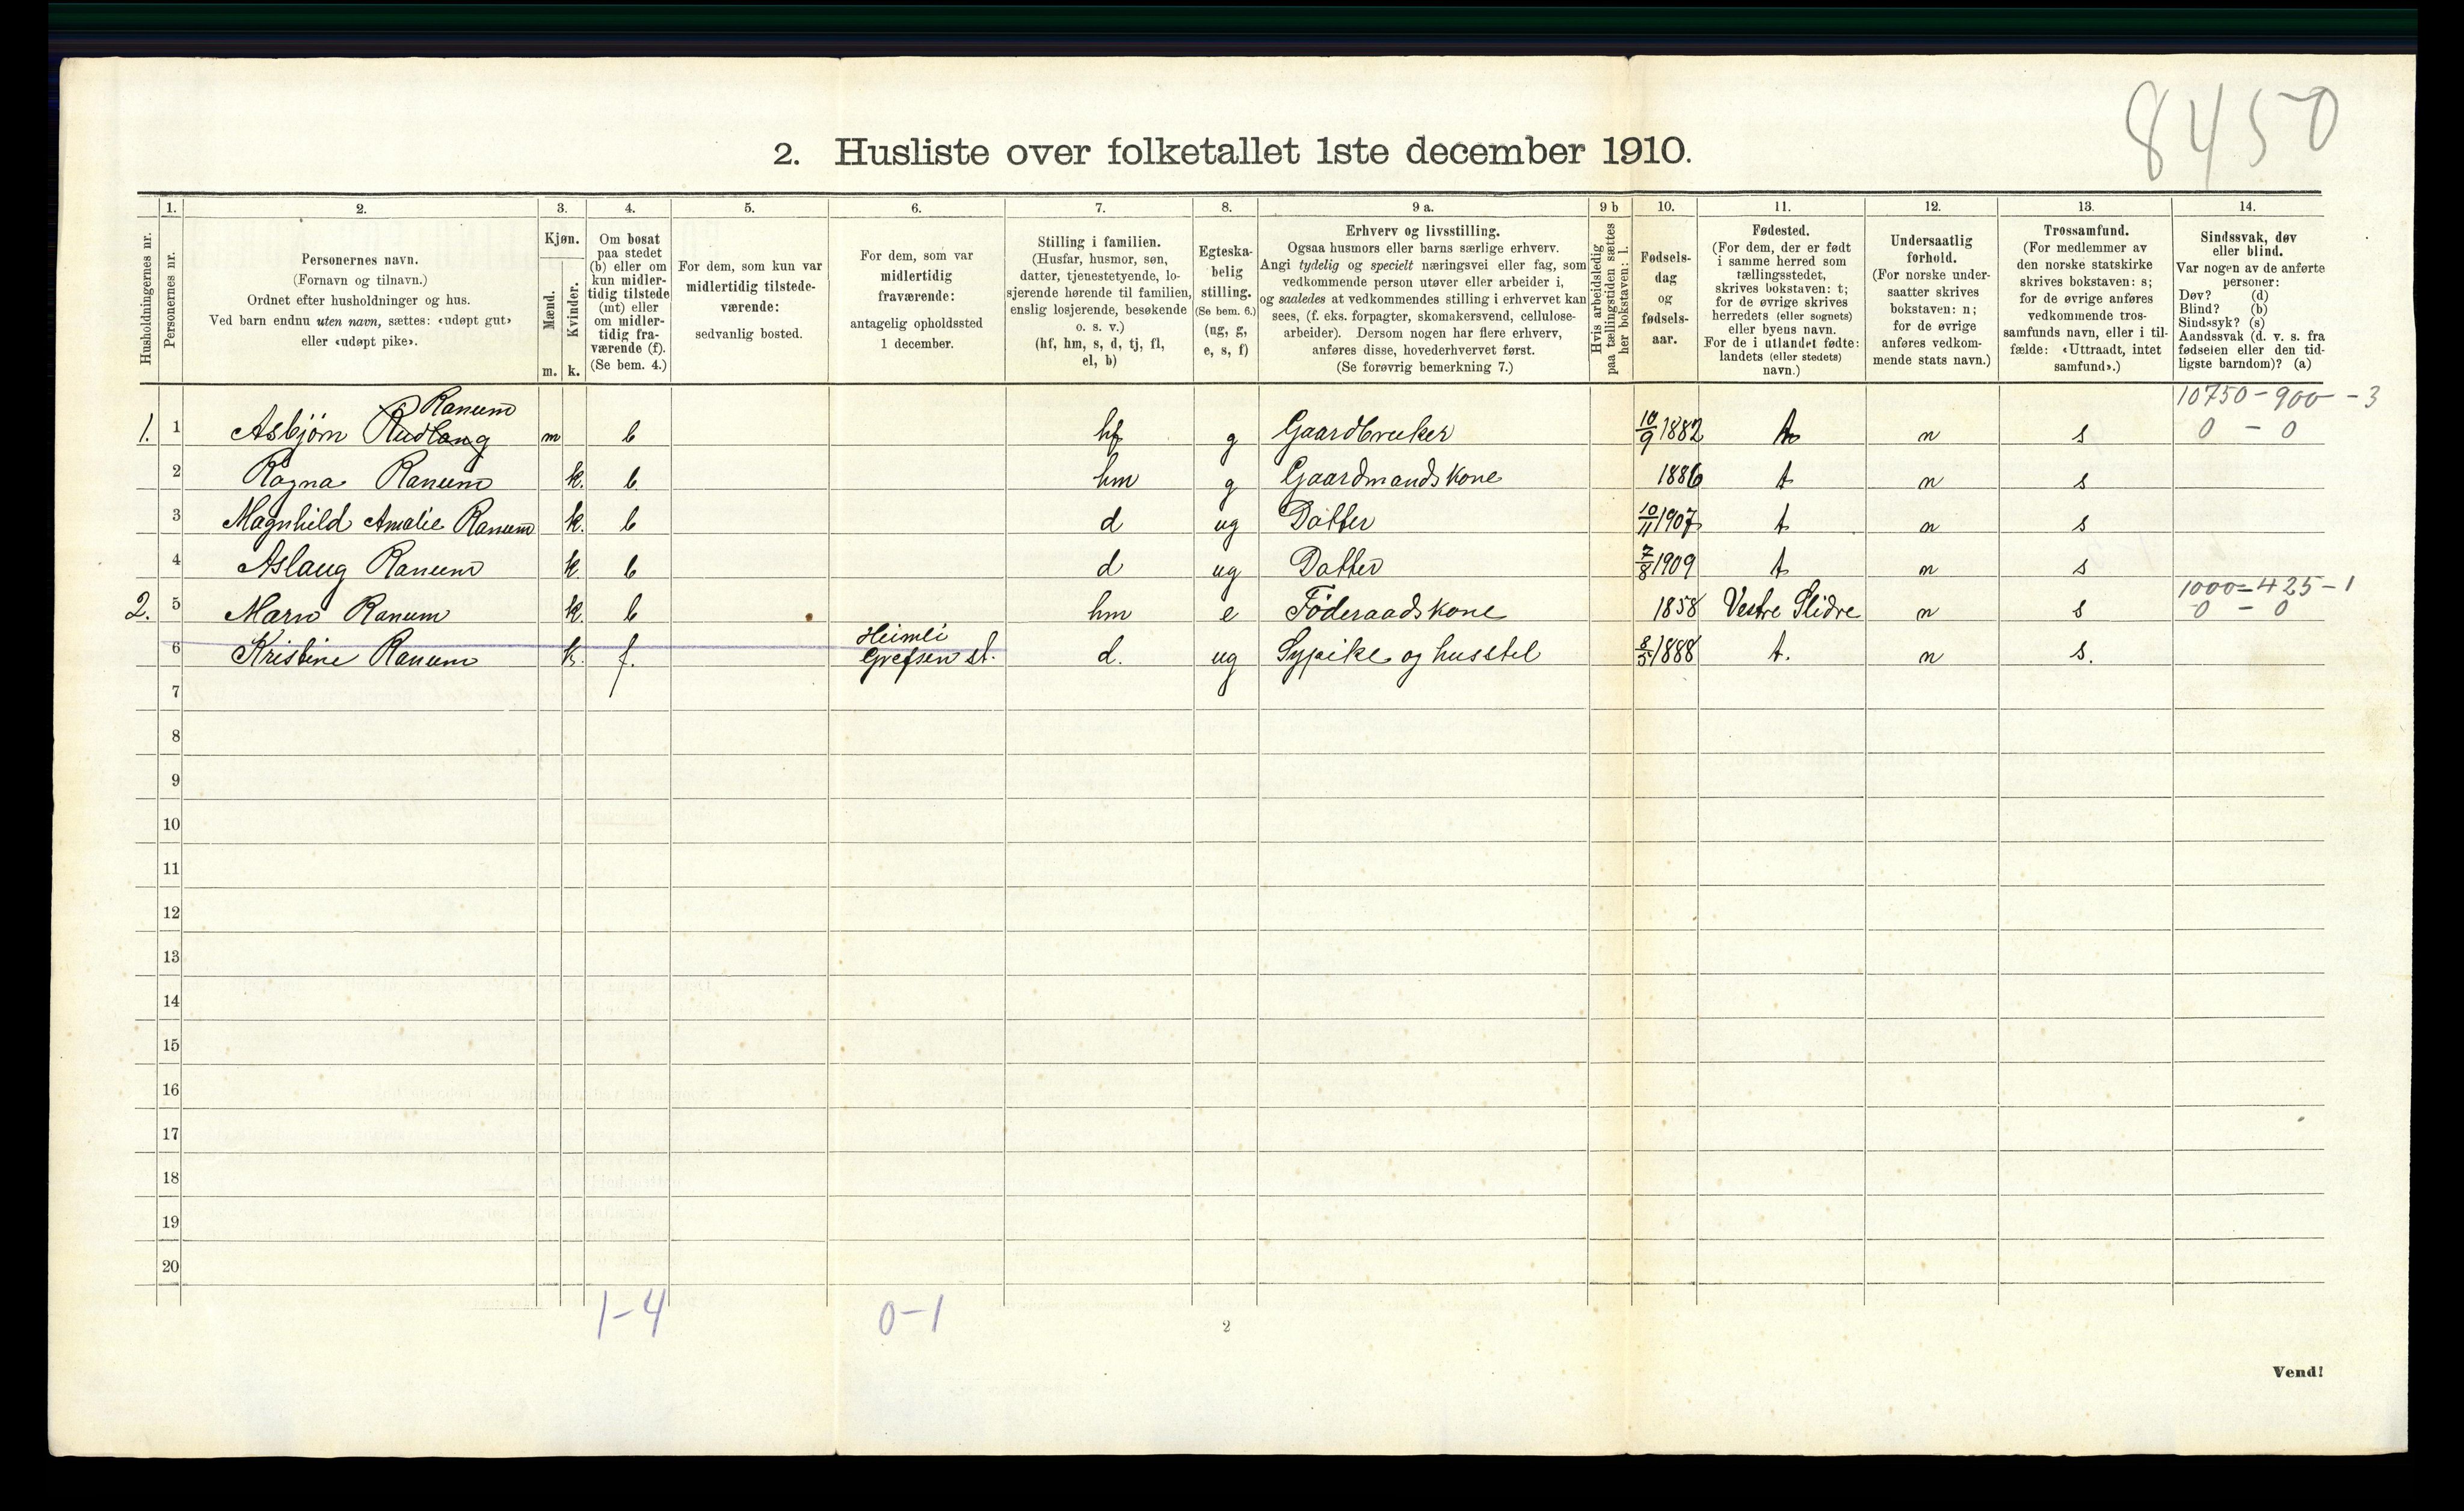 8450
2. Husliste over folketallet 1ste december 1910.
Husholdningernes nr.
1. Personernes nr.
2. Personernes navn.
(Fornavn og tilnavn.)
Ordnet efter husholdninger og hus.
Ved barn endnu uten navn, sættes: «udøpt gut»
eller «udøpt pike».
3. Kjøn.
Mænd. Kvinder.
m. k.
4. Om bosat
paa stedet
(b) eller om
kun midler-
tidig tilstede
(mt) eller
om midler-
tidig fra-
værende (f).
(Se bem. 4.)
5. For dem, som kun var
midlertidig tilstede-
værende:
sedvanlig bosted.
6. For dem, som var
midlertidig
fraværende:
antagelig opholdssted
1 december.
7. Stilling i familien.
(Husfar, husmor, søn,
datter, tjenestetyende, lo-
sjerende hørende til familien,
enslig losjerende, besøkende
o. s. v.)
(hf, hm, s, d, tj, fl,
el, b)
8. Egteska-
belig
stilling.
(Se bem. 6.)
(ug, g,
e, s, f)
9 a. Erhverv og livsstilling.
Ogsaa husmors eller barns særlige erhverv.
Angi tydelig og specielt næringsvei eller fag, som
vedkommende person utøver eller arbeider i,
og saaledes at vedkommendes stilling i erhvervet kan
sees, (f. eks. forpagter, skomakersvend, cellulose-
arbeider). Dersom nogen har flere erhverv,
anføres disse, hovederhvervet først.
(Se forøvrig bemerkning 7.)
9 b Hvis arbeidsledig
paa tællingstiden sættes
her bokstaven: l.
10. Fødsels-
dag
og
fødsels-
aar.
11. Fødested.
(For dem, der er født
i samme herred som
tællingsstedet,
skrives bokstaven: t;
for de øvrige skrives
herredets (eller sognets)
eller byens navn.
For de i utlandet fødte:
landets (eller stedets)
navn.)
12. Undersaatlig
forhold.
(For norske under-
saatter skrives
bokstaven: n;
for de øvrige
anføres vedkom-
mende stats navn.)
13. Trossamfund.
(For medlemmer av
den norske statskirke
skrives bokstaven: s;
for de øvrige anføres
vedkommende tros-
samfunds navn, eller i til-
fælde: «Uttraadt, intet
samfund».)
14. Sindssvak, døv
eller blind.
Var nogen av de anførte
personer:
Døv? (d)
Blind? (b)
Sindssyk? (s)
Aandssvak (d. v. s. fra
fødselen eller den tid-
ligste barndom)? (a)
Ranum 10750 - 900 - 3
1. 1 Asbjørn Rudlang m b hf g Gaardbruker 10/9 1882 t n s 0 - 0
2 Ragna Ranum k. b hm g Gaardmandskone 1886 t n s
3 Magnhild Amalie Ranum k. b d ug Datter 10/11 1907 t n s
4 Aslaug Ranum k. b d ug Datter 7/8 1909 t n s
1000 - 425 - 1
2. 5 Marn Ranum k. b hm e Føderaadskone 1858 Vestre Slidre n s 0 - 0
Heimli
6 Kristine Ranum k. f. Grefsen st. d. ug Sypike og husstel 8/5 1888 t. n s.
7
8
9
10
11
12
13
14
15
16
17
18
19
20
1-4 0-1
2
Vend!